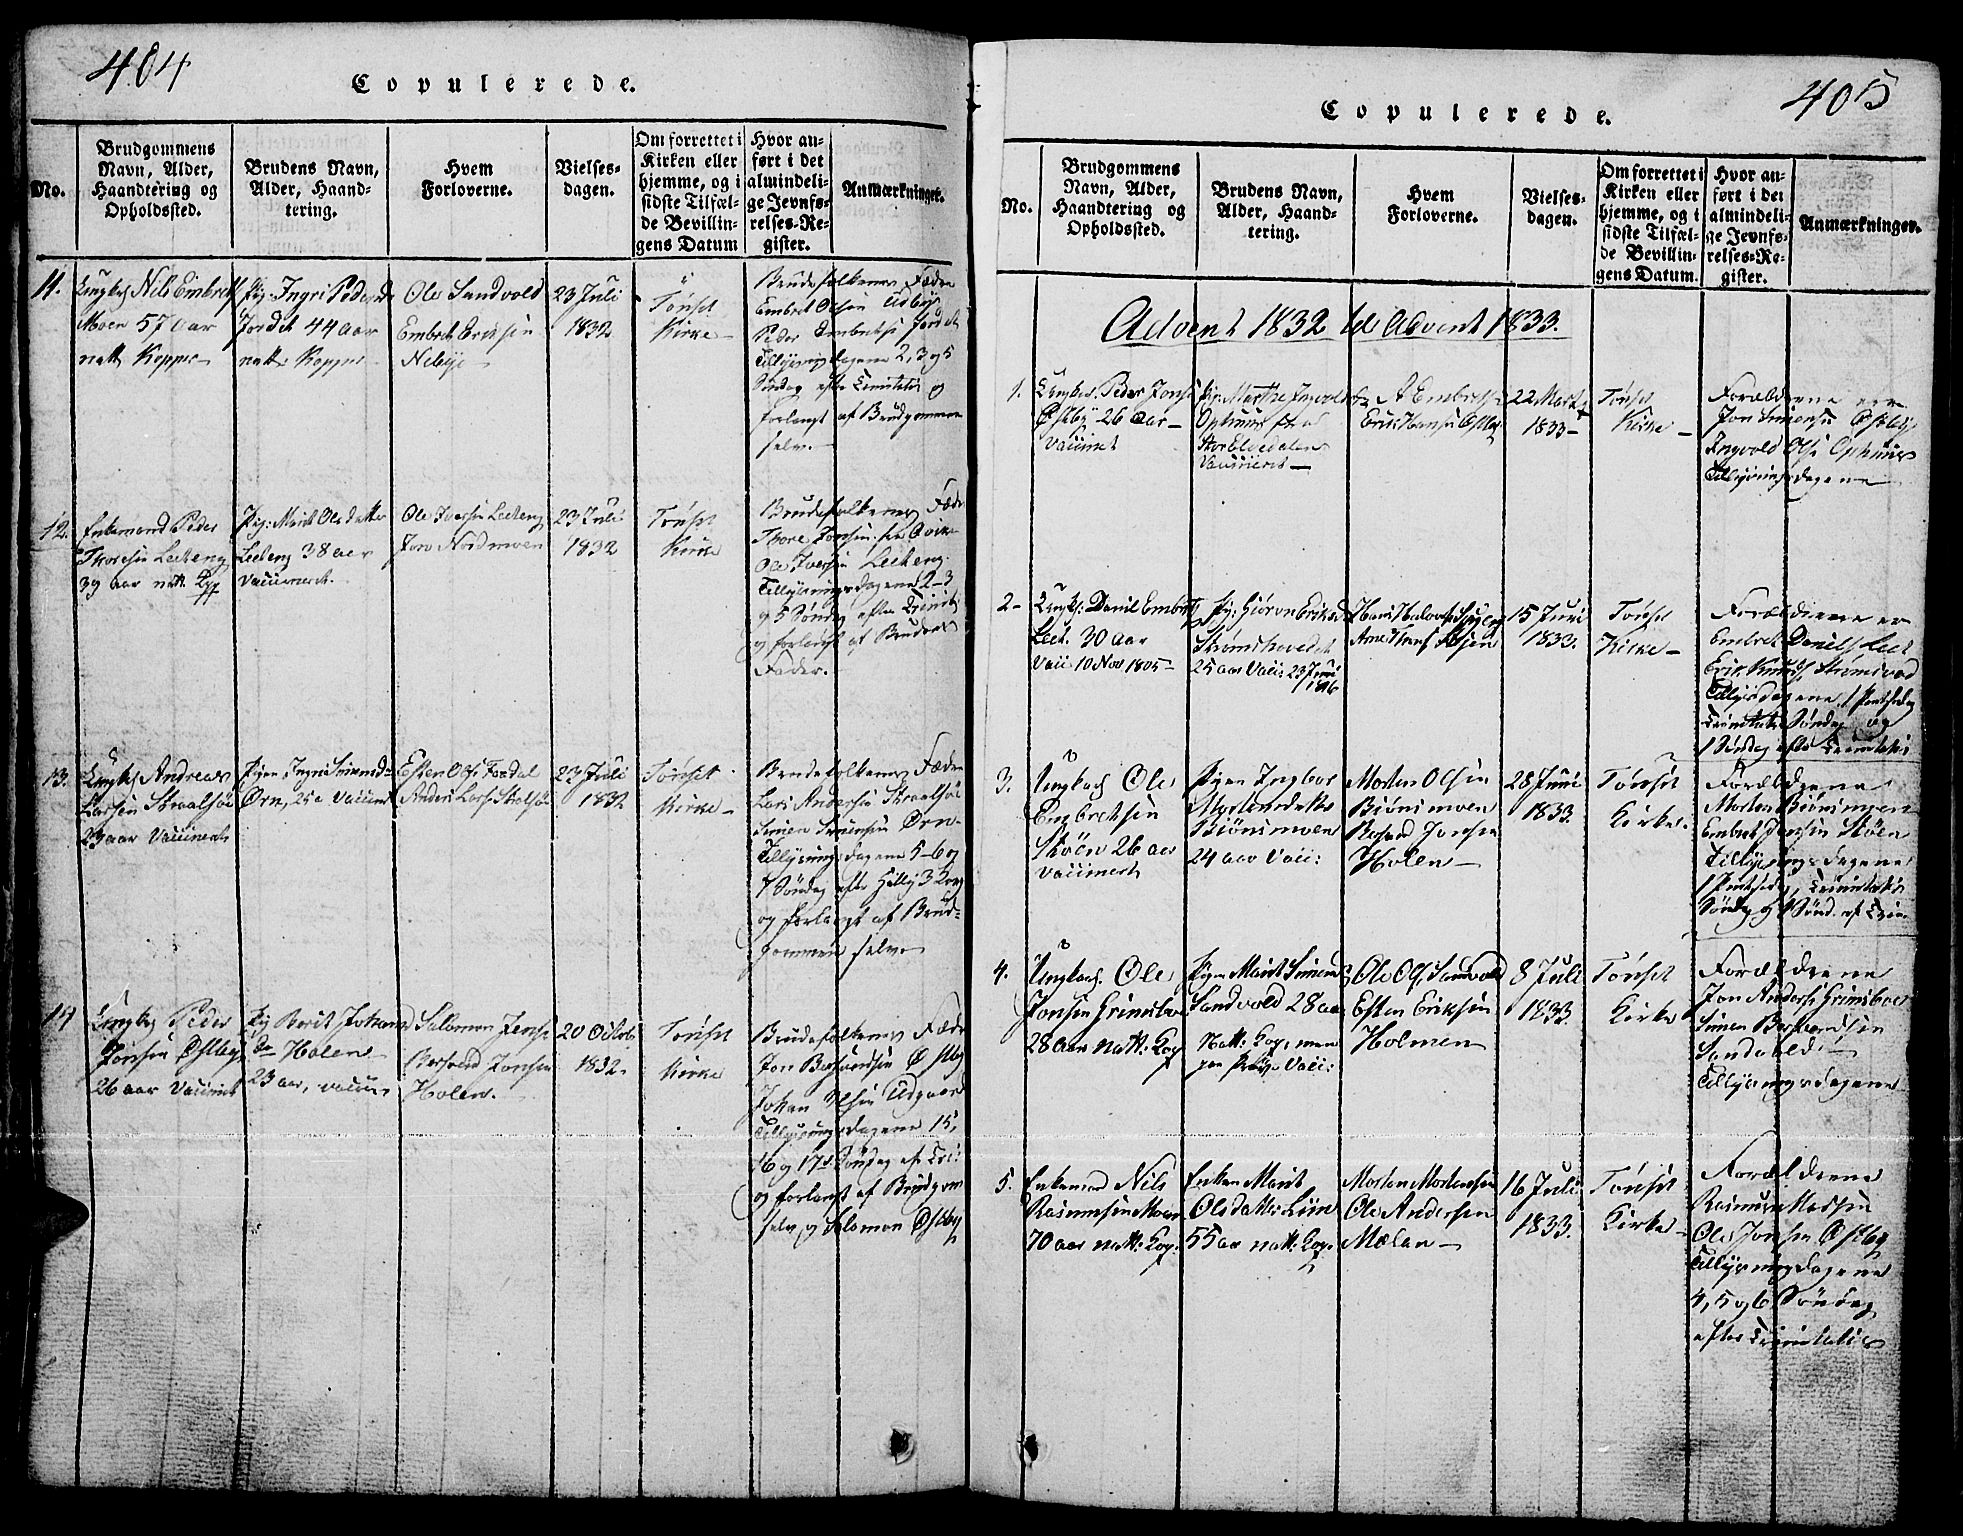 404
Copulerede.
No.
Brudgommens
Navn, Alder,
Haandtering og
Opholdssted.
Brudens Navn,
Alder, Haand-
tering.
Hvem
Forloverne.
Vielses-
dagen.
Om forrettet i
Kirken eller
hjemme, og i
sidste Tilfæl-
de Bevillin-
gens Datum
Hvor an-
ført i det
almindeli-
ge Jevnfø-
relses-Re-
gister.
Anmærkninger.
11.
Ungk: Nils Embret
Moen 57 aar
natt Kopper
Pig: Ingri Peders
Jordet 44 aar
natt: Kopper
Ole Sandvold
Embret Eriksen
Nebye
23 Juli
1832
Tönset
Kirke
Brudefolkenes Fædre
Embret Olsen
Peder Embretsen Jordet
Tillysningsdagene 2, 3 og 5
Søndag efter Trinitatis og
forlangt af Brudgommen
selv
12.
Enkemand Peder
Thoresen Leeteng
39 aar natt. Kop
Pig: Marit Olsdatter
Leeteng 38 aar
Vaccineret.
Ole Iversen Leeteng
Jon Nordmoen
23 Juli
1832
Tönset
Kirke
Brudefolkenes Fædre
Thore Jonsen fra
Ole Iversen Leeteng
Tillysningsdagene 2-3
og 5 Søndag efter Trinit
og forlangt af Brudens
Fader.
13.
Ungk: Andreas
Larsen Straalsöe
23 aar Vaccineret
Pigen Ingri Simensd
Ørn, 25 a Vaccineret
Esten Ols: Fordal
Anders Lars: Stralsöe
23 Juli
1832
Tönset
Kirke
Brudefolkenes Fædre
Lars Andersen Straalsöe
Simen Simensen Ørn
Tillysningsdagene 5-6 og
7 Søndag efter
og forlangt af Brud-
gommen selv
14
Ungk: Peder
Jonsen Østbye
26 aar Vaccineret
Pig Berit Johans
Da Holen
23 aar, vaccin
Salomon Jens:
Bersvend Jonsen
Holen.
20 Octob
1832.
Tönset
Kirke
Brudefolkenes Fædre
Jon Bersvendsen Østby
Johan Olsen
Tillysningsdagene 15,
16 og 17de Søndag ef Tri:
og forlangt af Brudgom
selv og Salomon Østby
405
Copulerede.
No.
Brudgommens
Navn, Alder,
Haandtering og
Opholdssted.
Brudens Navn,
Alder, Haand-
tering.
Hvem
Forloverne.
Vielses-
dagen.
Om forrettet i
Kirken eller
hjemme, og i
sidste Tilfæl-
de Bevillin-
gens Datum.
Hvor an-
ført i det
almindeli-
ge Jevnfø-
relses-Re-
gister.
Anmærkninger.
Advent 1832 til Advent 1833.
1.
Ungka: Peder Jonsen
Østby 26 aar
Vaccinet
Pig: Marthe Ingvolds
Ophuus fra
Stor Elvedalen
Vaccineret
A Embretsen
Erik Hansen Østby
22 Marts
1833
Tönset
Kirke
Forældrene ere
Jon Simensen Østby
Ingvold Ols: Ophuus
Tillysningsdagene
2
Ungk: Daniel Embrets
Leet. 30 aar
Vacc 10 Nov 1805
Pig: Giøron Eriksd
Strömshovedet
25 aar Vacc: 23 Juni
1816
15 Juni
1833.
Tönset
Kirke
Forældrene er
Embret Daniels Leet
Erik Knuds: Strömsved
Tillysdagene 1 Pintsedag
Trinitatis Søndag og
1 Søndag efter Trinitatis
3.
Ungkarl Ole
Embretsen
Stöen 26 aar
Vaccineret
Pigen Ingbor
Mortensdatter
Biönsmoen
24 aar Vacc:
Morten Olsen
Biönsmoen
Bersvend Jonsen
Holen
28 Juni
1833.
Tönset
Kirke.
Forældrene
Morten Biönsmoen
Embret Jonsen Stöen
Tillysningsdagene
1 Pintsedag, Trinitatis
Søndag og 1 Sönd. ef Trin
4.
Ungkarl Ole
Jonsen Grimsboe
28 aar natt: Kop
Pigen Marit Simens
Sandvold 28 aar
Natt: Kop, men
paa Prøve Vacc:
Ole Ols: Sandvold
Esten Eriksen
Holmen
8 Juli
1833.
Tönset
Kirke
Forældrene
Jon Anders: Grimsboe
Simen Bersvendsen
Sandvold
Tillysningsdagene
5.
Enkemand Nils
Rasmusen Moen
70 aar natt: Kop.
Enken Marit
Olsdatter Liin
55 aar natt: Kop.
Morten Mortensen
Ole Andersen
Mælen
16 Juli
1833.
Tönset
Kirke
Forældrene
Rasmus Madsen
Ole Jonsen Østby
Tillysningsdagene
4, 5 og 6 Søndag
efter Trinitatis